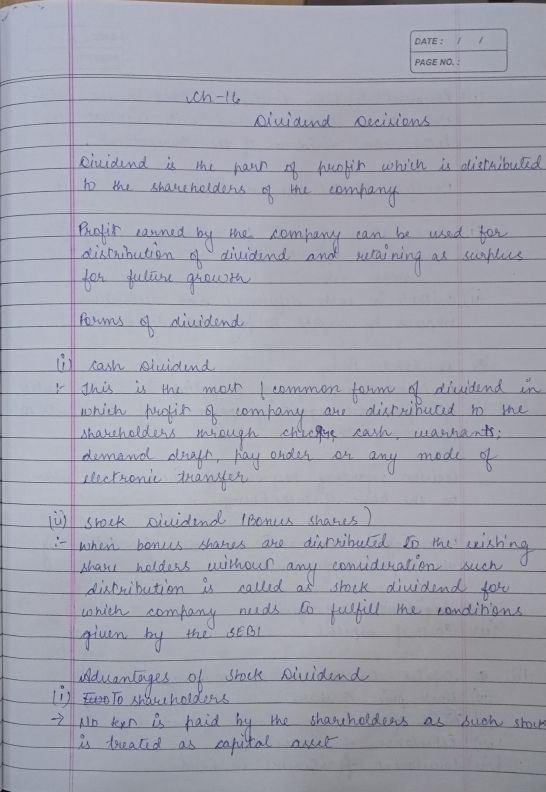 DATE: / /
PAGE NO.:
Ch-16
Dividend Decisions
Dividend is the part of profit which is distributed
to the shareholders of the company
Profit earned by the company can be used for
distribution of dividend and retaining as surplus
for future growth
Forms of dividend
(i) Cash Dividend
:- This is the most common form of dividend in
which profit of company are distributed to the
shareholders through cheque cash, warrants,
demand draft, pay order or any mode of
electronic transfer
(ii) Stock Dividend (Bonus shares)
:- when bonus shares are distributed to the existing
share holders without any consideration such
distribution is called as stock dividend for
which company needs to fulfill the conditions
given by the SEBI
Advantages of Stock Dividend
(i) To shareholders
→ No is paid by the shareholders as such stock
is treated as capital asset